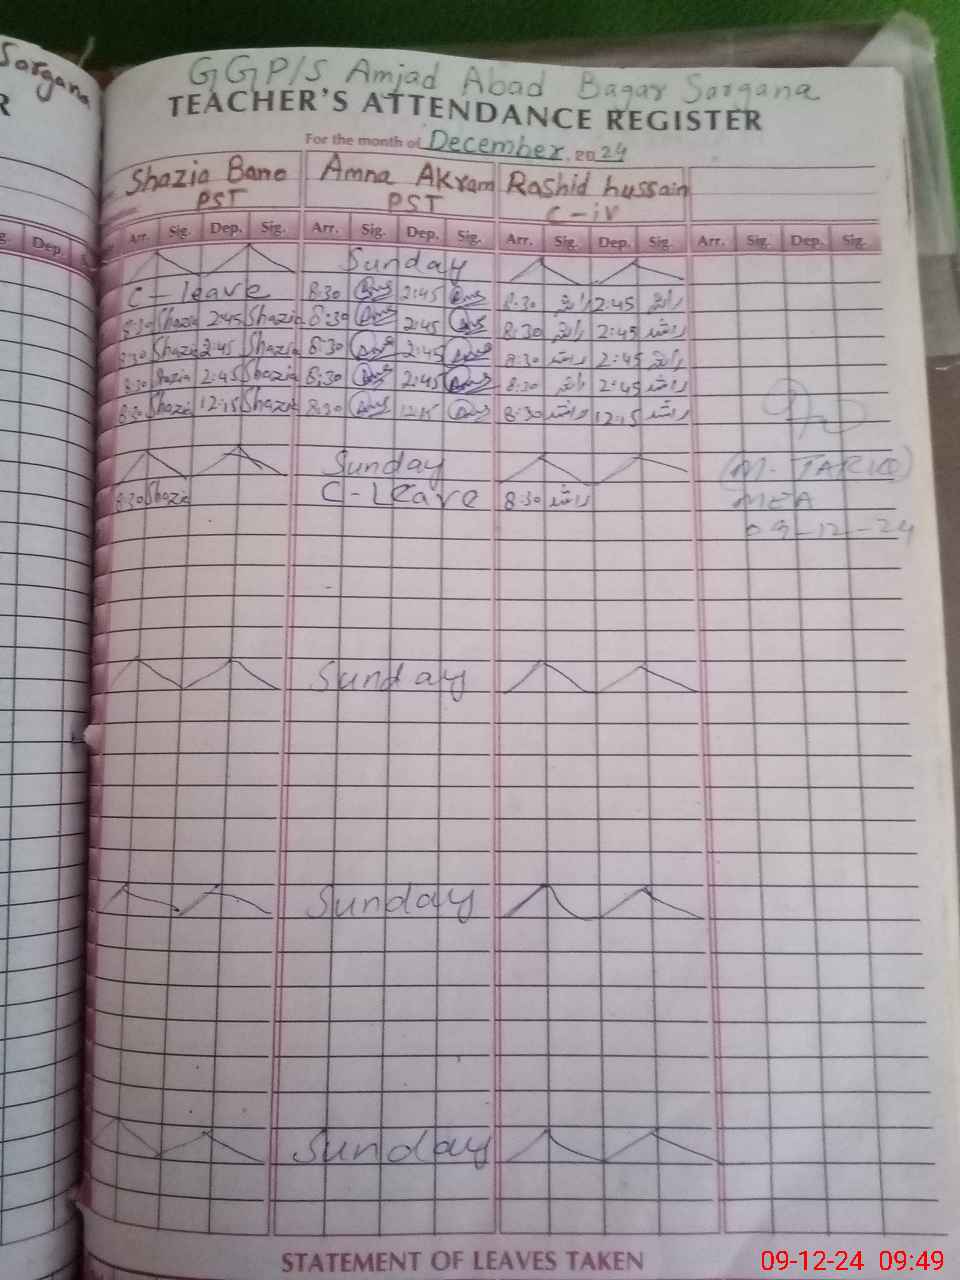 Sorgana
R
GGP/S Amjad Abad Bagar Sorgana
TEACHER'S ATTENDANCE REGISTER
For the month of December, 2024
Shazia Bano Amna Akram Rashid hussain
PST PST C-iv
Dep. Arr. Sig. Dep. Sig. Arr. Sig. Dep. Sig. Arr. Sig. Dep. Sig. Arr. Sig. Dep. Sig.
Sunday
C-leave 8:30 2:45 8:30 راشد 2:45 راشد
8:30 Shazia 2:45 Shazia 8:30 2:45 8:30 راشد 2:45 راشد
8:30 Shazia 2:45 Shazia 8:30 2:45 8:30 راشد 2:45 راشد
8:30 Shazia 2:45 Shazia 8:30 2:45 8:30 راشد 2:45 راشد
8:30 Shazia 12:15 Shazia 8:30 12:15 8:30 راشد 12:15 راشد
Sunday (M. TARIQ)
8:30 Shazia C-Leave 8:30 راشد MEA
09-12-24
Sunday
Sunday
Sunday
STATEMENT OF LEAVES TAKEN
09-12-24 09:49